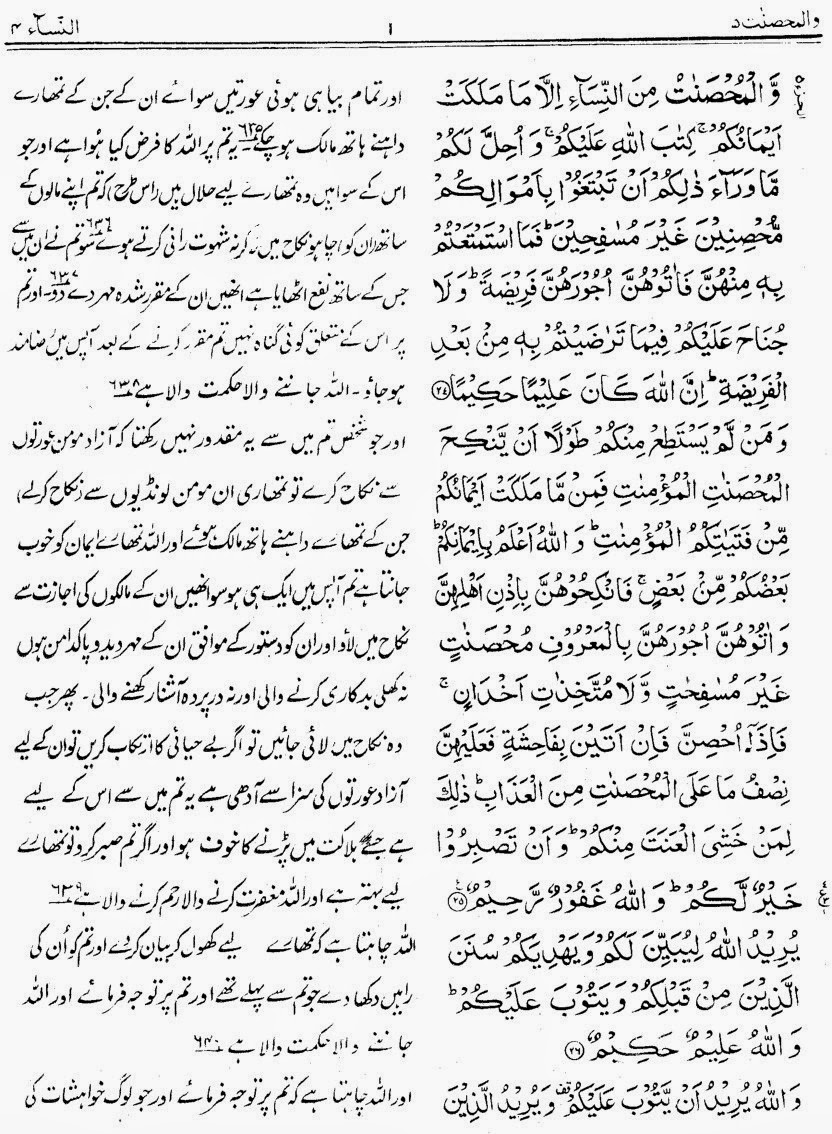 والمحصنٰت ۵
۱
النّساء ۴
وَّالْمُحْصَنٰتُ مِنَ النِّسَآءِ اِلَّا مَا مَلَكَتْ
اَيْمَانُكُمْ ۚ كِتٰبَ اللّٰهِ عَلَيْكُمْ ۚ وَ اُحِلَّ لَكُمْ
مَّا وَرَآءَ ذٰلِكُمْ اَنْ تَبْتَغُوْا بِاَمْوَالِكُمْ
مُّحْصِنِيْنَ غَيْرَ مُسٰفِحِيْنَ ؕ فَمَا اسْتَمْتَعْتُمْ
بِهٖ مِنْهُنَّ فَاٰتُوْهُنَّ اُجُوْرَهُنَّ فَرِيْضَةً ؕ وَ لَا
جُنَاحَ عَلَيْكُمْ فِيْمَا تَرٰضَيْتُمْ بِهٖ مِنْۢ بَعْدِ
الْفَرِيْضَةِ ؕ اِنَّ اللّٰهَ كَانَ عَلِيْمًا حَكِيْمًا ۲۴
وَ مَنْ لَّمْ يَسْتَطِعْ مِنْكُمْ طَوْلًا اَنْ يَّنْكِحَ
الْمُحْصَنٰتِ الْمُؤْمِنٰتِ فَمِنْ مَّا مَلَكَتْ اَيْمَانُكُمْ
مِّنْ فَتَيٰتِكُمُ الْمُؤْمِنٰتِ ؕ وَ اللّٰهُ اَعْلَمُ بِاِيْمَانِكُمْ ؕ
بَعْضُكُمْ مِّنْۢ بَعْضٍ ۚ فَانْكِحُوْهُنَّ بِاِذْنِ اَهْلِهِنَّ
وَ اٰتُوْهُنَّ اُجُوْرَهُنَّ بِالْمَعْرُوْفِ مُحْصَنٰتٍ
غَيْرَ مُسٰفِحٰتٍ وَّ لَا مُتَّخِذٰتِ اَخْدَانٍ ۚ
فَاِذَاۤ اُحْصِنَّ فَاِنْ اَتَيْنَ بِفَاحِشَةٍ فَعَلَيْهِنَّ
نِصْفُ مَا عَلَى الْمُحْصَنٰتِ مِنَ الْعَذَابِ ؕ ذٰلِكَ
لِمَنْ خَشِيَ الْعَنَتَ مِنْكُمْ ؕ وَ اَنْ تَصْبِرُوْا
خَيْرٌ لَّكُمْ ؕ وَ اللّٰهُ غَفُوْرٌ رَّحِيْمٌ ۲۵
يُرِيْدُ اللّٰهُ لِيُبَيِّنَ لَكُمْ وَ يَهْدِيَكُمْ سُنَنَ
الَّذِيْنَ مِنْ قَبْلِكُمْ وَ يَتُوْبَ عَلَيْكُمْ ؕ
وَ اللّٰهُ عَلِيْمٌ حَكِيْمٌ ۲۶
وَ اللّٰهُ يُرِيْدُ اَنْ يَّتُوْبَ عَلَيْكُمْ وَ يُرِيْدُ الَّذِيْنَ
اور تمام بیاہی ہوئی عورتیں سوائے ان کے جن کے تمھارے
داہنے ہاتھ مالک ہو چکے ۶۳۵ یہ تم پر اللہ کا فرض کیا ہوا ہے اور جو
اس کے سوا ہیں وہ تمھارے لیے حلال ہیں (اس طرح) کہ تم اپنے مالوں کے
ساتھ (ان کو) چاہو نکاح میں لاکر نہ شہوت رانی کرتے ہوئے ۶۳۶ سو تم نے ان میں سے
جس کے ساتھ نفع اٹھایا ہے انھیں ان کے مقرر شدہ مہر دے دو ۶۳۷۔ اور تم
پر اس کے متعلق کوئی گناہ نہیں تم مقرر کرنے کے بعد آپس میں رضامند
ہو جاؤ۔ اللہ جاننے والا حکمت والا ہے ۶۳۸
اور جو شخص تم میں سے یہ مقدور نہیں رکھتا کہ آزاد مومن عورتوں
سے نکاح کرے تو تمھاری ان مومن لونڈیوں سے (نکاح کرلے)
جن کے تمھارے داہنے ہاتھ مالک ہوئے اور اللہ تمھارے ایمان کو خوب
جانتا ہے تم آپس میں ایک ہی ہو سو انھیں ان کے مالکوں کی اجازت سے
نکاح میں لاؤ اور ان کو دستور کے موافق ان کے مہر دیدو پاکدامن ہوں
نہ کھلی بدکاری کرنے والی اور نہ در پردہ آشنا رکھنے والی۔ پھر جب
وہ نکاح میں لائی جائیں تو اگر بے حیائی کا ارتکاب کریں تو ان کے لیے
آزاد عورتوں کی سزا سے آدھی ہے یہ تم میں سے اس کے لیے
ہے جسے ہلاکت میں پڑنے کا خوف ہو اور اگر تم صبر کرو تو تمھارے
لیے بہتر ہے اور اللہ مغفرت کرنے والا رحم کرنے والا ہے ۶۳۹
اللہ چاہتا ہے کہ تمھارے لیے کھول کر بیان کردے اور تم کو اُن کی
راہیں دکھا دے جو تم سے پہلے تھے اور تم پر توجہ فرمائے اور اللہ
جاننے والا حکمت والا ہے ۶۴۰
اور اللہ چاہتا ہے کہ تم پر توجہ فرمائے اور جو لوگ خواہشات کی